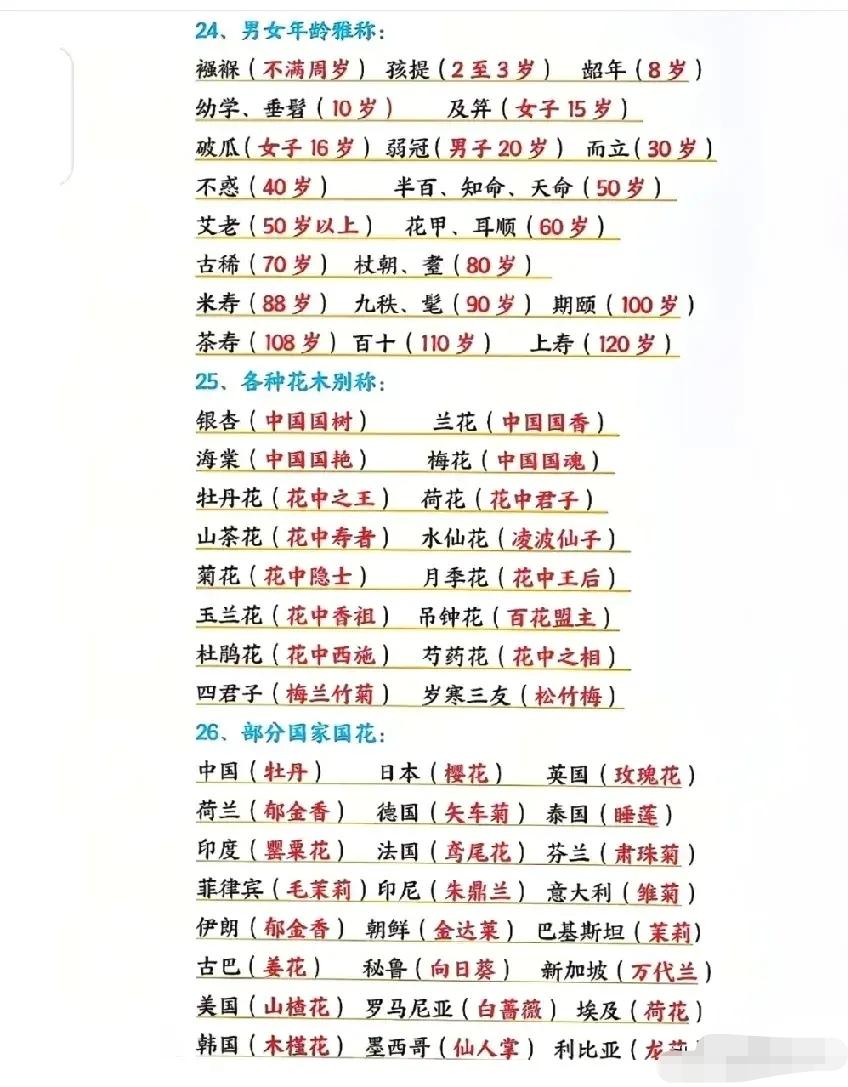 24、男女年龄雅称:
襁褓(不满周岁) 孩提(2至3岁) 龆年(8岁)
幼学、垂髫(10岁) 及笄(女子15岁)
破瓜(女子16岁) 弱冠(男子20岁) 而立(30岁)
不惑(40岁) 半百、知命、天命(50岁)
艾老(50岁以上) 花甲、耳顺(60岁)
古稀(70岁) 杖朝、耄(80岁)
米寿(88岁) 九秩、髦(90岁) 期颐(100岁)
茶寿(108岁) 百十(110岁) 上寿(120岁)
25、各种花木别称:
银杏(中国国树) 兰花(中国国香)
海棠(中国国艳) 梅花(中国国魂)
牡丹花(花中之王) 荷花(花中君子)
山茶花(花中寿者) 水仙花(凌波仙子)
菊花(花中隐士) 月季花(花中王后)
玉兰花(花中香祖) 吊钟花(百花盟主)
杜鹃花(花中西施) 芍药花(花中之相)
四君子(梅兰竹菊) 岁寒三友(松竹梅)
26、部分国家国花:
中国(牡丹) 日本(樱花) 英国(玫瑰花)
荷兰(郁金香) 德国(矢车菊) 泰国(睡莲)
印度(罂粟花) 法国(鸢尾花) 芬兰(肃珠菊)
菲律宾(毛茉莉) 印尼(朱鼎兰) 意大利(雏菊)
伊朗(郁金香) 朝鲜(金达莱) 巴基斯坦(茉莉)
古巴(姜花) 秘鲁(向日葵) 新加坡(万代兰)
美国(山楂花) 罗马尼亚(白蔷薇) 埃及(荷花)
韩国(木槿花) 墨西哥(仙人掌) 利比亚(龙